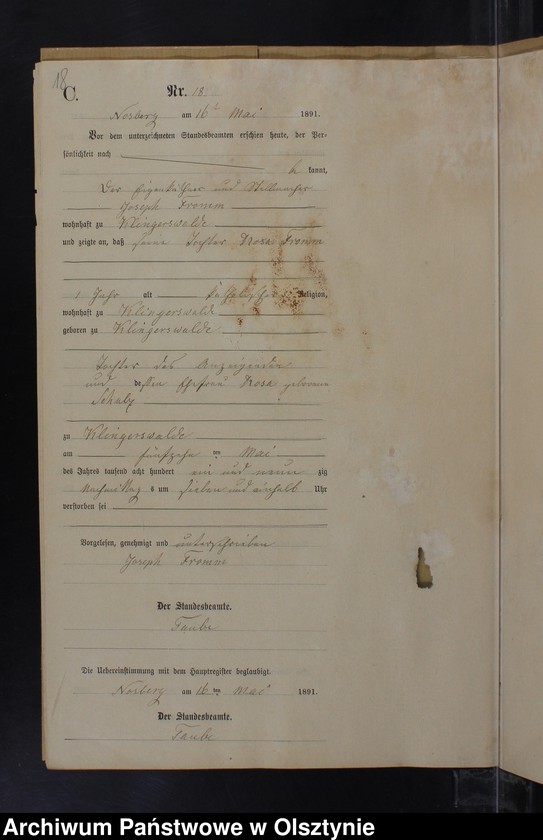 18
C.
Nr. 18.
Nosberg am 16ᵗ Mai 1891.
Vor dem unterzeichneten Standesbeamten erschien heute, der Per-
sönlichkeit nach
kannt,
Der Eigenkäthner und Stellmacher
Joseph Fromm
wohnhaft zu Klingerswalde
und zeigte an, daß seine Tochter Rosa Fromm
1 Jahr alt katholischer Religion,
wohnhaft zu Klingerswalde
geboren zu Klingerswalde
Tochter des Anzeigenden
und dessen Ehefrau Rosa geborene
Schulz
zu Klingerswalde
am fünfzehn ten Mai
des Jahres tausend acht hundert ein und neun zig
Nachmittags um sieben und einhalb Uhr
verstorben sei
Vorgelesen, genehmigt und unterschrieben
Joseph Fromm
Der Standesbeamte.
Taube
Die Uebereinstimmung mit dem Hauptregister beglaubigt.
Nosberg am 16 ten Mai 1891.
Der Standesbeamte.
Taube
Archiwum Państwowe w Olsztynie